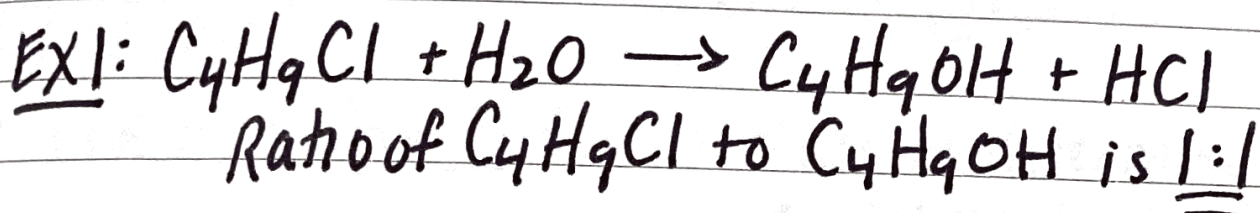 EX1: C4H9Cl + H2O → C4H9OH + HCl
Ratio of C4H9Cl to C4H9OH is 1:1